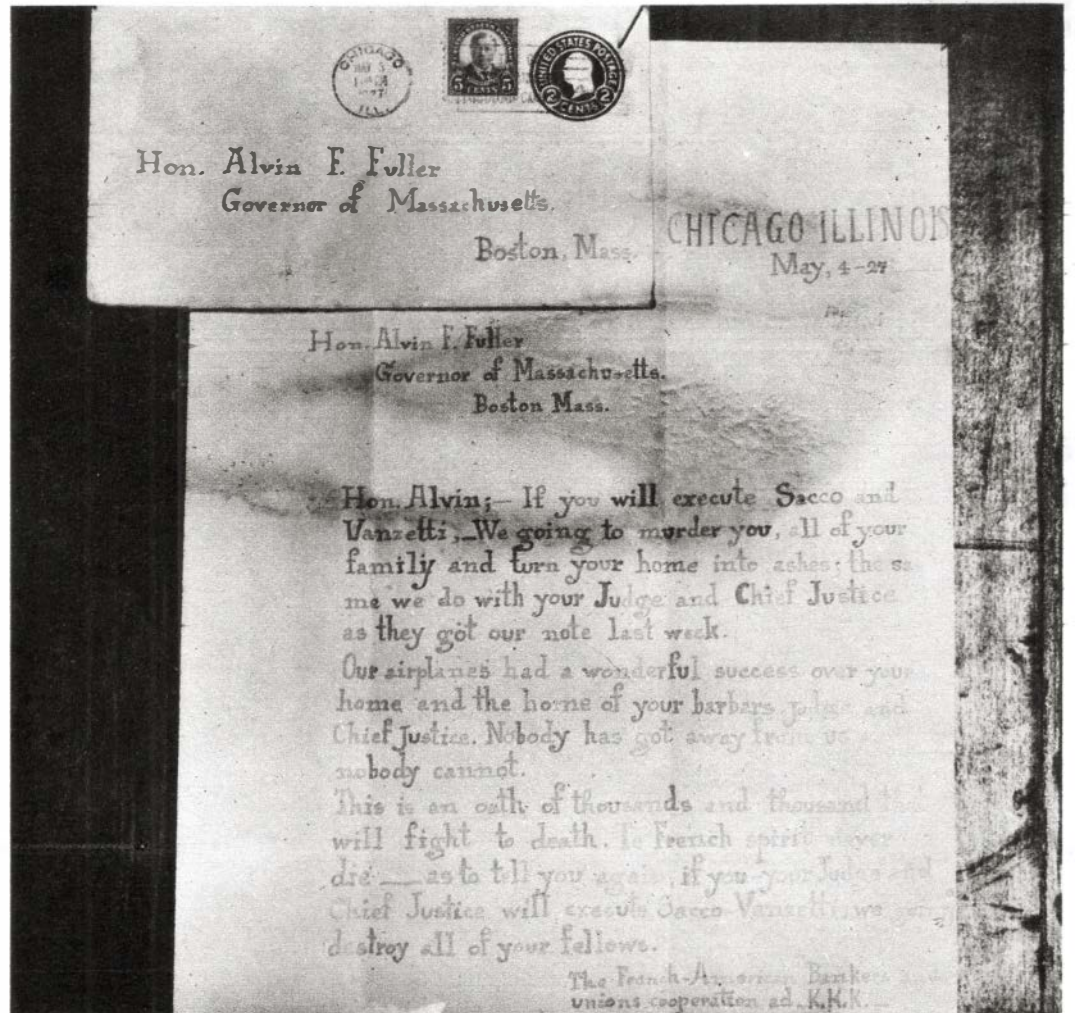 CHICAGO
ILL.
5 CENTS 5
UNITED STATES POSTAGE
2 CENTS 2
Hon. Alvin F. Fuller
Governor of Massachusetts.
Boston, Mass.
CHICAGO ILLINOIS
May, 4-27
Hon. Alvin F. Fuller
Governor of Massachusetts.
Boston Mass.
Hon. Alvin;— If you will execute Sacco and
Vanzetti,—We going to murder you, all of your
family and turn your home into ashes; the sa
me we do with your Judge and Chief Justice
as they got our note last week.
Our airplanes had a wonderful success over your
home and the home of your barbars judge and
Chief Justice. Nobody has got away from us
nobody cannot.
This is an oath of thousands and thousand
will fight to death. Te French spirit never
die — as to tell you again, if you-your Judge and
Chief Justice will execute Sacco-Vanzetti, we
destroy all of your fellows.
The French-American Bankers
unions cooperation ad. K.K.K.—